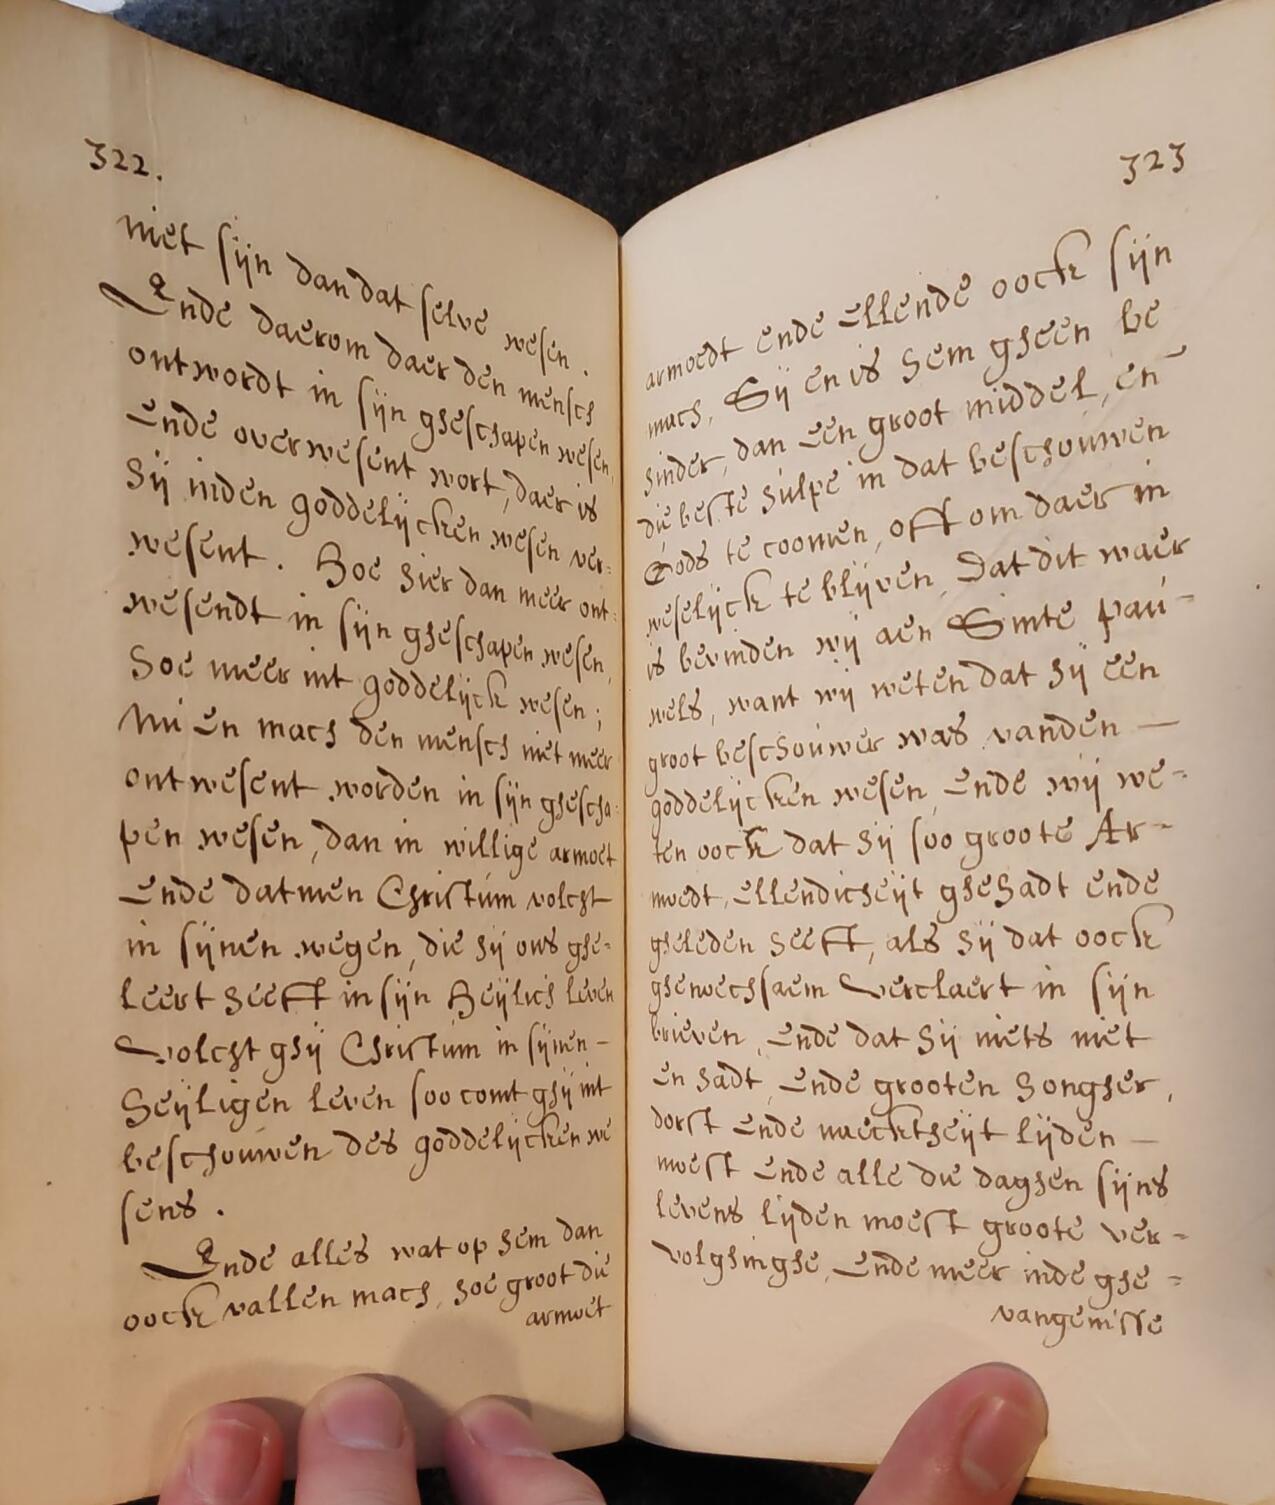 322.
niet sijn dan dat selve wesen.
Ende daerom daer den mensch
ontwordt in sijn gheschapen wesen,
Ende overwesent wort, daer is
hij inden goddelijcken wesen ver=
wesent. Hoe hier dan meer ont=
wesendt in sijn gheschapen wesen,
hoe meer int goddelijck wesen;
Nu En mach den mensch niet meer
ontwesent worden in sijn ghescha=
pen wesen, dan in willige armoet
Ende datmen Christúm volcht
in sijnen wegen, die hij ons ghe=
leert heefft in sijn Heijlich leven
Volcht ghij Christúm in sijnen –
heijligen leven soo comt ghij int
beschoúwen des goddelijcken we
sens.
Ende alles wat op hem dan
oock vallen mach, hoe groot die
armoet
323
armoedt ende Ellende oock sijn
mach, Hij en is hem gheen be
hinder, dan Een groot middel, en
die beste húlpe in dat beschoúwen
Gods te coomen, off om daer in
weselijck te blijven, Dat dit waer
is bevinden wij aen Sinte paú=
wels, want wij weten dat hij een
groot beschoúwer was vanden —
goddelijcken wesen, Ende wij we=
ten oock dat hij soo groote Ar=
moedt, Ellendicheijt ghehadt ende
gheleden heefft, als hij dat oock
ghenoechsaem Verclaert in sijn
brieven, Ende dat hij niets niet
en hadt, Ende grooten hongher,
dorst Ende naecktheijt lijden —
moest Ende alle die daghen sijns
levens lijden moest groote ver=
volghinghe, Ende meer inde ghe=
vangenisse